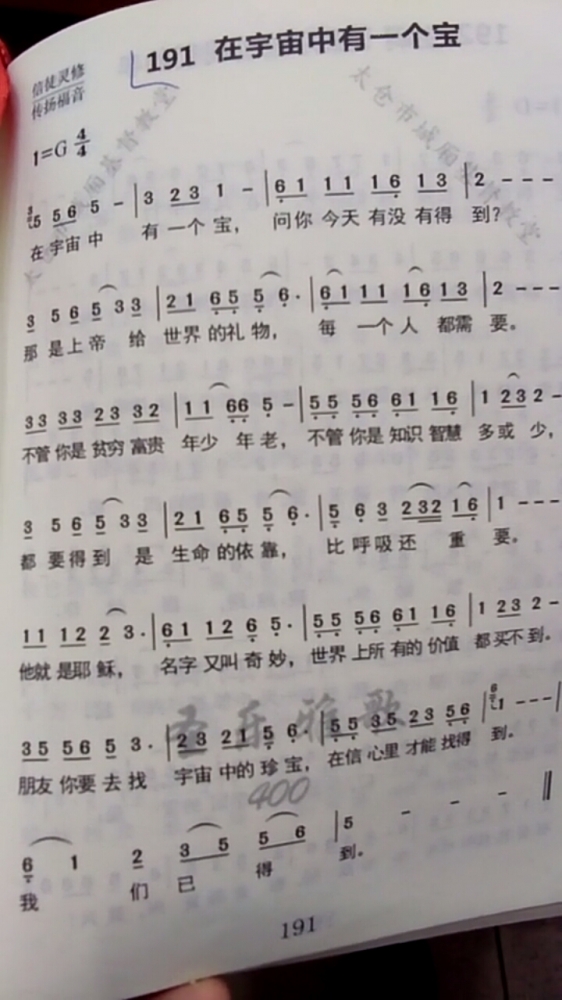 191 在宇宙中有一个宝
信徒灵修
传扬福音
1=G 4/4
5 5 6 5 - | 3 2 3 1 - | 6 1 1 1 1 6 1 3 | 2 - - -
在宇宙中 有一个宝， 问你今天有没有得 到？
3 5 6 5 3 3 | 2 1 6 5 5 6 · | 6 1 1 1 1 6 1 3 | 2 - - -
那是上帝 给 世界的礼物， 每 一个人 都需 要。
3 3 3 3 2 3 3 2 | 1 1 6 6 5 - | 5 5 5 6 6 1 1 6 | 1 2 3 2 -
不管你是贫穷富贵 年少 年老， 不管你是知识智慧 多或 少，
3 5 6 5 3 3 | 2 1 6 5 5 6 · | 5 6 3 2 3 2 1 6 | 1 - - -
都要得到 是 生命的依靠， 比呼吸还 重 要。
1 1 1 2 2 3 · | 6 1 1 2 6 5 · | 5 5 5 6 6 1 1 6 | 1 2 3 2 -
他就是耶稣， 名字又叫奇妙， 世界上所有的价值 都买不到。
3 5 5 6 5 3 · | 2 3 2 1 5 6 · | 5 5 3 5 2 3 5 6 | 6 1 - - -
朋友你要去找 宇宙中的珍宝， 在信心里才能找得 到。
6 1 2 3 5 5 6 | 5 - - - ‖
我 们 已 得 到。
圣乐雅歌
400
191